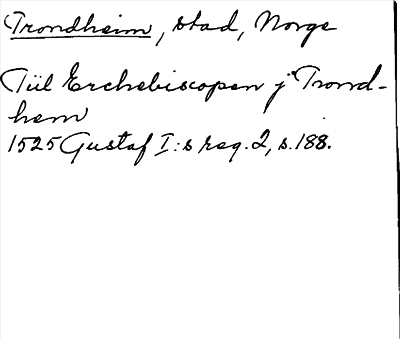 Trondheim, stad, Norge
Tiil Erchebiscopen j Trond-
hem
1525 Gustaf I:s reg. 2, s. 188.